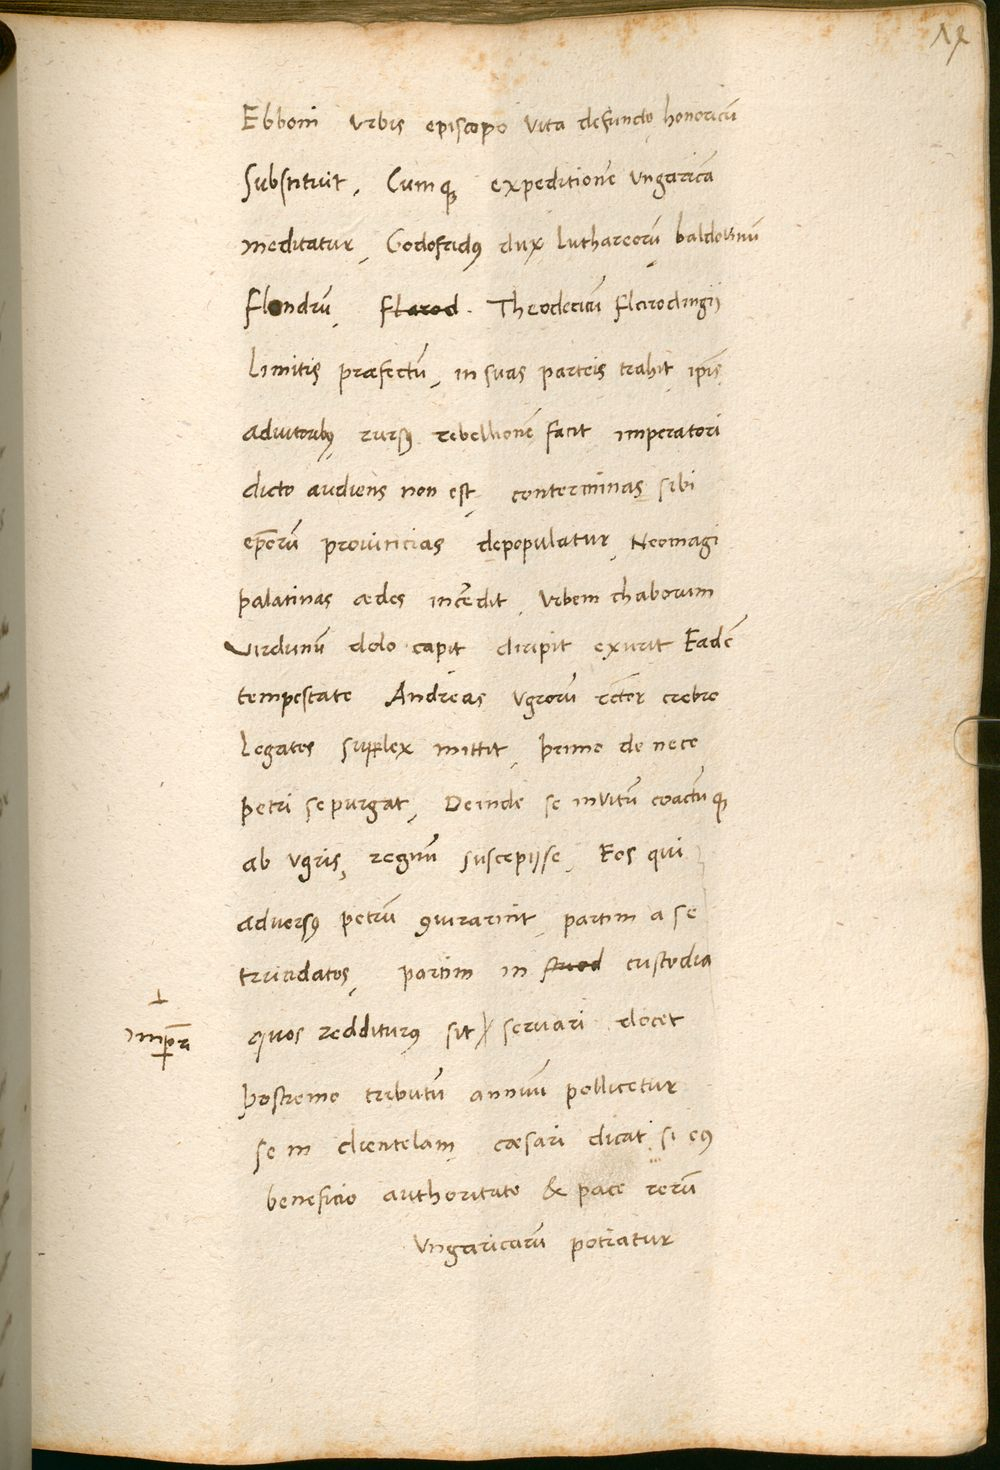 Ebboni Vrbis episcopo Vita defuncto honoricū
Substituit, Cumq₃ expeditionē Vngaricā
meditatur, Godofridꝰ dux Luthareorū baldoinū
flandrū, flarod. Theodericū flarodingii
Limitis præfectū, in suas parteis trahit ip̄is
adiutoribꝰ rursꝰ rebellionē facit imperatori
dicto audiens non est, conterminas sibi
ep̄orū prouincias depopulatur, Neomagi
palatinas ædes incēdit, Vrbem chaborum
Virdunū dolo capit diripit exurit Eadē
tempestate Andreas Vgrorū rector crebro
Legatos supplex mittit, primo de nece
petri se purgat, Deinde se inuitū coactūq₃
ab Vgris, regnū suscepisse, Eos qui
aduersꝰ petrū ꝯiurarint partim a se
trucidatos, partim in custodia
quos redditurꝰ sit servari docet
imp̄ri
postremo tributū annuū pollicetur
se in clientelam, cæsari dicat, si eiꝰ
beneficio authoritate & pace rerū
Vngaricarū potiatur